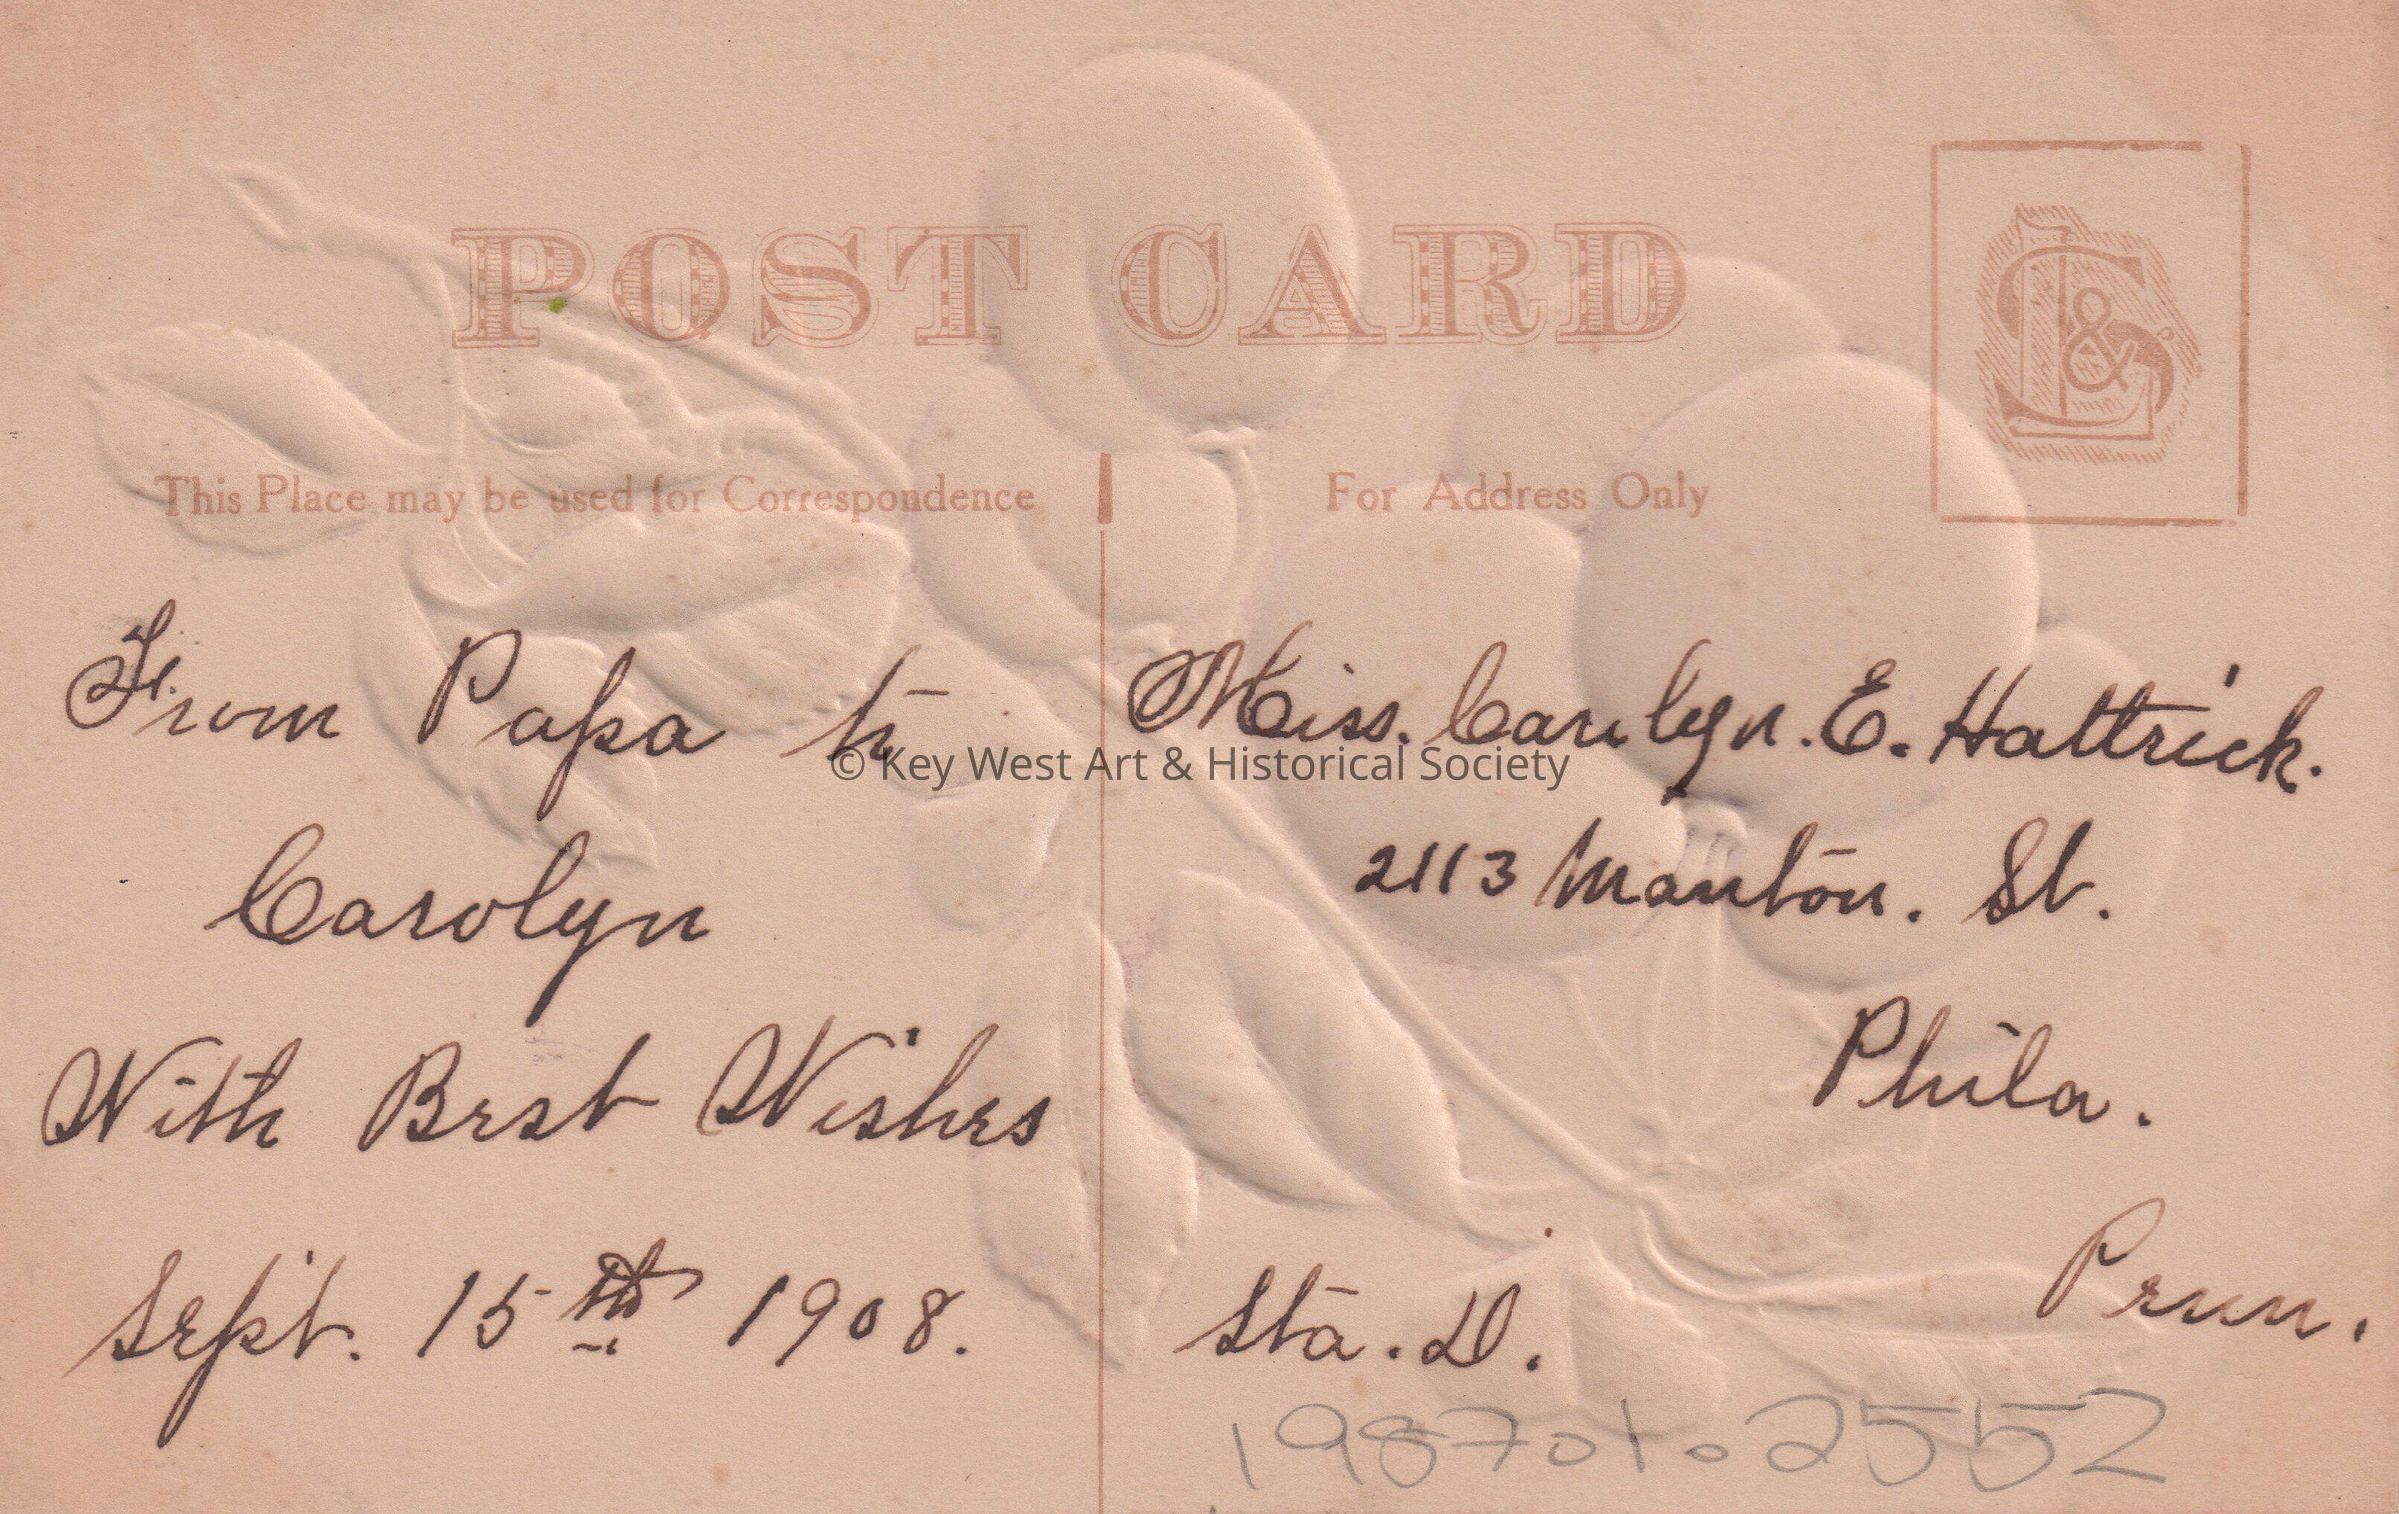 POST CARD
L & S
This Place may be used for Correspondence
For Address Only
From Papa to
Carolyn
With Best Wishes
Sept. 15th 1908.
Miss. Carolyn. E. Hattrick.
2113 Manton. St.
Phila.
Penn.
Sta. D.
1987.01.2552
© Key West Art & Historical Society